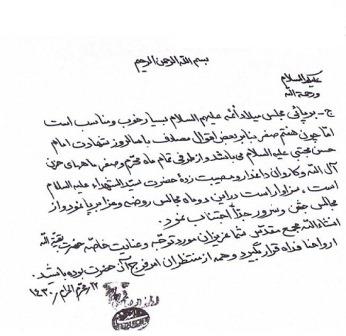 بسم الله الرحمن الرحیم
علیکم السلام
ورحمة الله
ج - برپائی مجلس میلاد ائمه علیهم السلام بسیار خوب و مناسب است
امّا چون هفتم صفر بنابر بعض اقوال مصادف با سالروز شهادت امام
حسن مجتبی علیه السلام می‌باشد و از طرفی تمام ماه محرّم و صفر ماههای حزن
آل الله و کاروان داغدار و مصیبت زدهٔ حضرت سیّد الشهداء علیه السلام
است، سزاوار است در این دو ماه مجالس روضه و عزا برپا نمود و از
مجالس جشن و سرور جدّاً اجتناب نمود.
انشاء الله مجمع مقدّس شما عزیزان مورد توجّه و عنایت خاصّه حضرت بقیّة الله
ارواحنا فداه قرار گیرد و همه از منتظران امر فرج آن حضرت بوده باشید.
۱۲ محرم الحرام ۱۴۳۰